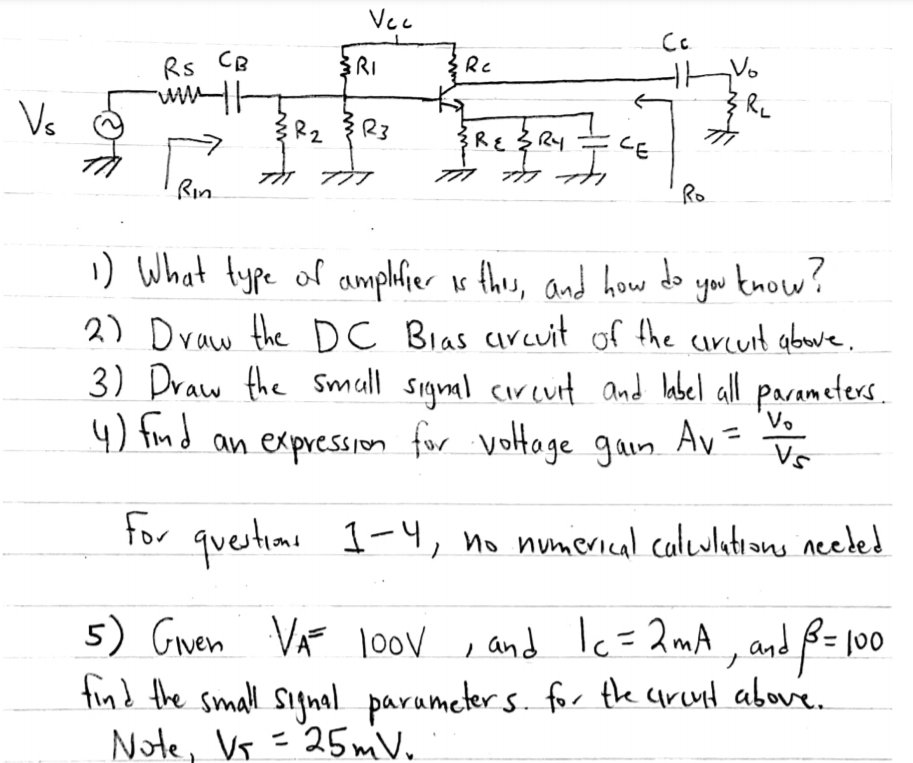 Vcc
Cc
Rs CB R1 Rc Vo
RL
Vs R2 R3 RE R4 CE
Rin Ro
1) What type of amplifier is this, and how do you know?
2) Draw the DC Bias circuit of the circuit above.
3) Draw the small signal circuit and label all parameters.
4) find an expression for voltage gain Av = Vo
Vs
For questions 1-4, no numerical calculations needed
5) Given VA= 100V , and Ic = 2mA , and β=100
find the small signal parameters. for the circuit above.
Note, VT = 25mV.